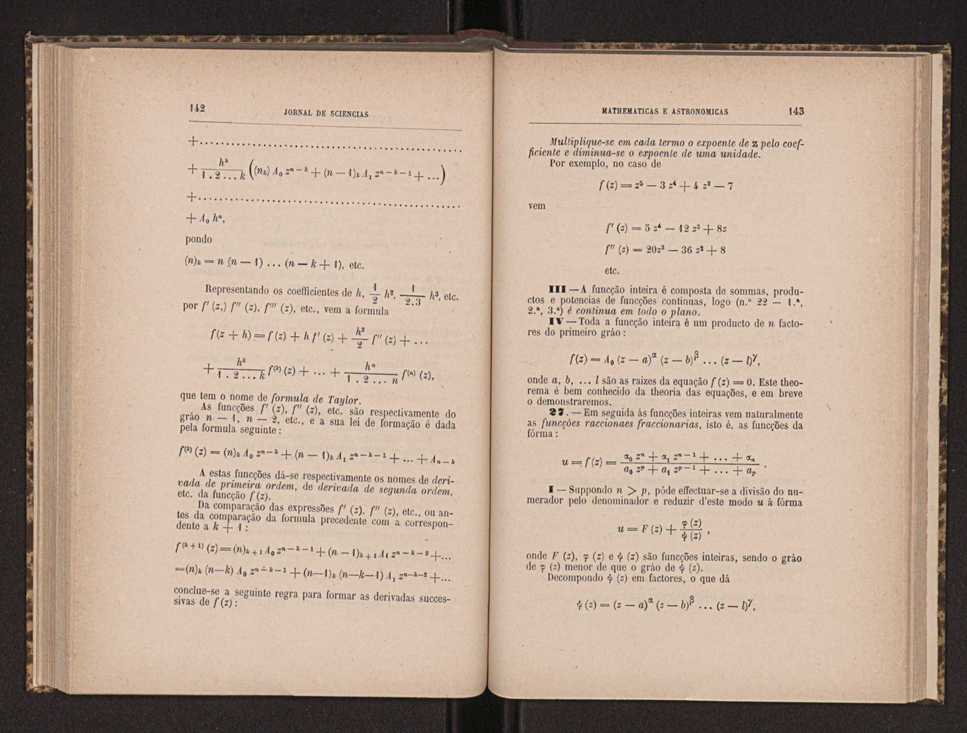 142
JORNAL DE SCIENCIAS
+ . . . . . . . . . . . . . . . . . . . . . . . . . . . . . . . . . . . . . . . .
+ h^k / (1 . 2 ... k) ((n)_k A_0 z^(n-k) + (n — 1)_k A_1 z^(n-k-1) + ...)
+ . . . . . . . . . . . . . . . . . . . . . . . . . . . . . . . . . . . . . . . .
+ A_0 h^n,
pondo
(n)_k = n (n — 1) ... (n — k + 1), etc.
Representando os coefficientes de h, 1/2 h², 1/(2.3) h³, etc.
por f' (z,) f'' (z), f''' (z), etc., vem a formula
f(z + h) = f (z) + h f' (z) + h²/2 f'' (z) + ...
+ h^k / (1 . 2 ... k) f^(k) (z) + ... + h^n / (1 . 2 ... n) f^(n) (z),
que tem o nome de formula de Taylor.
As funcções f' (z), f'' (z), etc. são respectivamente do
gráo n — 1, n — 2, etc., e a sua lei de formação é dada
pela formula seguinte:
f^(k) (z) = (n)_k A_0 z^(n-k) + (n — 1)_k A_1 z^(n-k-1) + ... + A_(n-k)
A estas funcções dá-se respectivamente os nomes de deri-
vada de primeira ordem, de derivada de segunda ordem,
etc. da funcção f (z).
Da comparação das expressões f' (z), f'' (z), etc., ou an-
tes da comparação da formula precedente com a correspon-
dente a k + 1:
f^(k+1) (z) = (n)_(k+1) A_0 z^(n-k-1) + (n — 1)_(k+1) A_1 z^(n-k-2) + ...
= (n)_k (n—k) A_0 z^(n-k-1) + (n—1)_k (n—k—1) A_1 z^(n-k-2) + ...
conclue-se a seguinte regra para formar as derivadas succes-
sivas de f (z):
MATHEMATICAS E ASTRONOMICAS
143
Multiplique-se em cada termo o expoente de z pelo coef-
ficiente e diminua-se o expoente de uma unidade.
Por exemplo, no caso de
f (z) = z⁵ — 3 z⁴ + 4 z² — 7
vem
f' (z) = 5 z⁴ — 12 z³ + 8z
f'' (z) = 20z³ — 36 z² + 8
etc.
III — A funcção inteira é composta de sommas, produ-
ctos e potencias de funcções continuas, logo (n.º 22 — 1.º,
2.º, 3.º) é continua em todo o plano.
IV — Toda a funcção inteira é um producto de n facto-
res do primeiro gráo:
f(z) = A_0 (z — a)^α (z — b)^β ... (z — l)^γ,
onde a, b, ... l são as raizes da equação f (z) = 0. Este theo-
rema é bem conhecido da theoria das equações, e em breve
o demonstraremos.
27. — Em seguida ás funcções inteiras vem naturalmente
as funcções raccionaes fraccionarias, isto é, as funcções da
fórma:
u = f (z) = (α_0 z^n + α_1 z^(n-1) + ... + α_n) / (a_0 z^p + a_1 z^(p-1) + ... + a_p) .
I — Suppondo n > p, póde effectuar-se a divisão do nu-
merador pelo denominador e reduzir d'este modo u á fórma
u = F (z) + φ (z) / ψ (z) ,
onde F (z), φ (z) e ψ (z) são funcções inteiras, sendo o gráo
de φ (z) menor de que o gráo de ψ (z).
Decompondo ψ (z) em factores, o que dá
ψ (z) = (z — a)^α (z — b)^β ... (z — l)^γ,